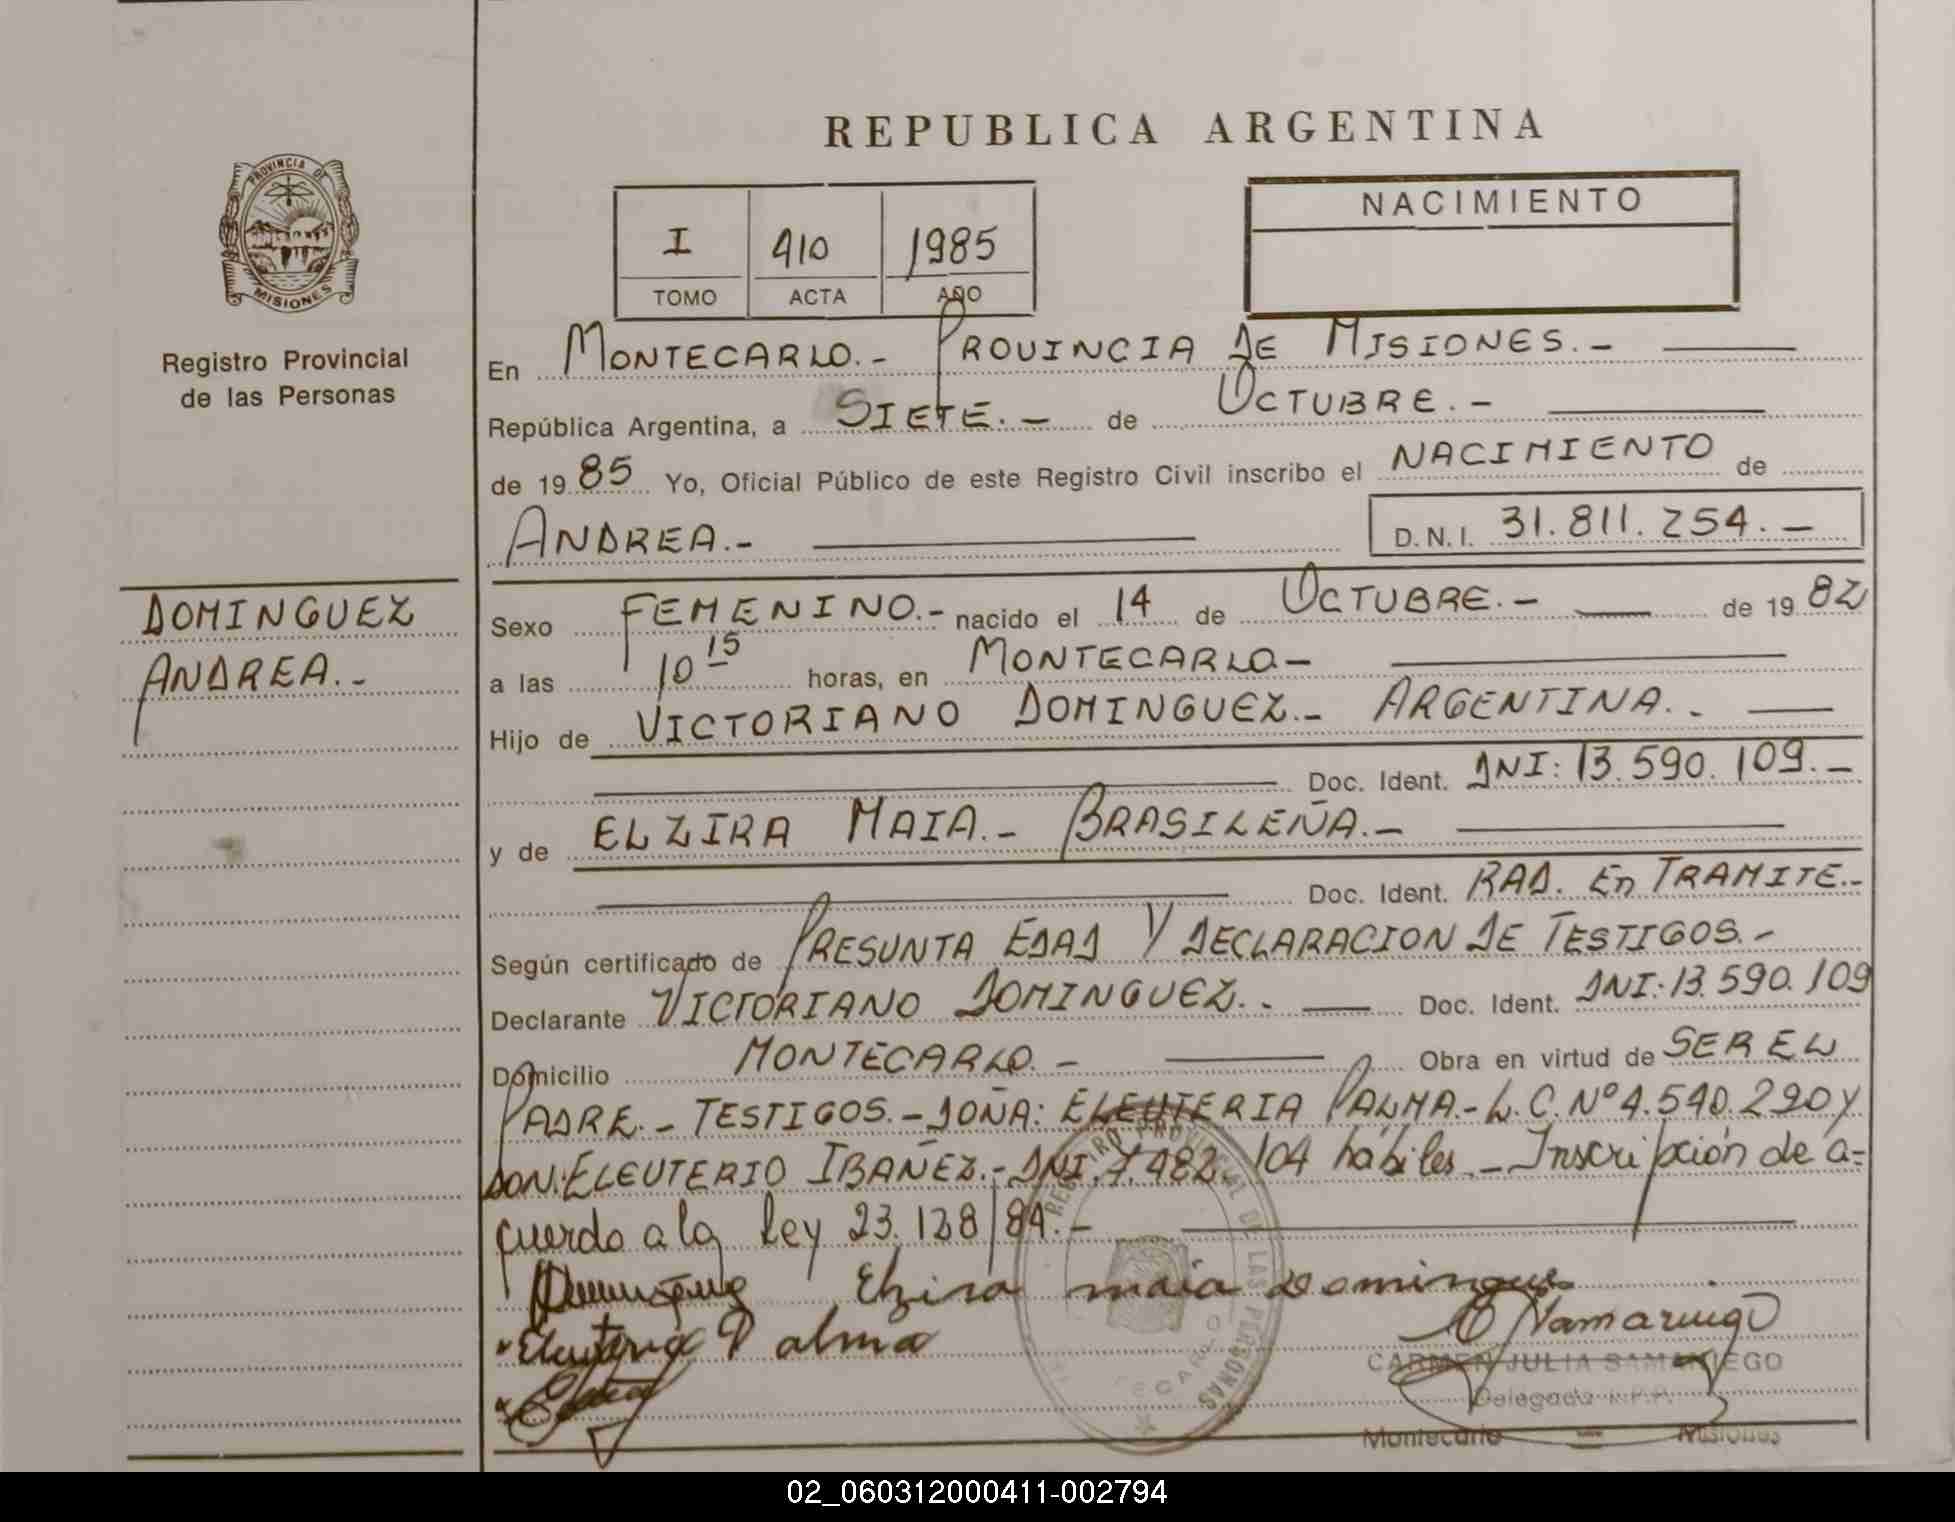 REPUBLICA ARGENTINA
PROVINCIA DE
MISIONES
Registro Provincial
de las Personas
I 410 1985
TOMO ACTA AÑO
NACIMIENTO
En MONTECARLO.- PROVINCIA DE MISIONES.-
República Argentina, a SIETE.- de OCTUBRE.-
de 1985 Yo, Oficial Público de este Registro Civil inscribo el NACIMIENTO de
ANDREA.- D.N.I. 31.811.254.-
DOMINGUEZ
ANDREA.-
Sexo FEMENINO.- nacido el 14 de OCTUBRE.- de 1982
a las 10 15 horas, en MONTECARLO-
Hijo de VICTORIANO DOMINGUEZ.- ARGENTINA.-
Doc. Ident. DNI: 13.590.109.-
y de ELZIRA MAIA.- BRASILEÑA.-
Doc. Ident. RAD. En TRAMITE.-
Según certificado de PRESUNTA EDAD Y DECLARACION DE TESTIGOS.-
Declarante VICTORIANO DOMINGUEZ.- Doc. Ident. DNI: 13.590.109
Domicilio MONTECARLO.- Obra en virtud de SER EL
PADRE.- TESTIGOS.- DOÑA: ELEUTERIA PALMA.- L.C. Nº 4.540.290 Y
DON: ELEUTERIO IBAÑEZ.- DNI. 7.482.104 hábiles.- Inscripción de a=
cuerdo a la ley 23.128/84.-
Elzira maia Domingues
Eleuteria Palma
REGISTRO PROVINCIAL DE LAS PERSONAS
CARMEN JULIA SAMANIEGO
Delegada R.P.P.
Montecarlo - Misiones
02_060312000411-002794